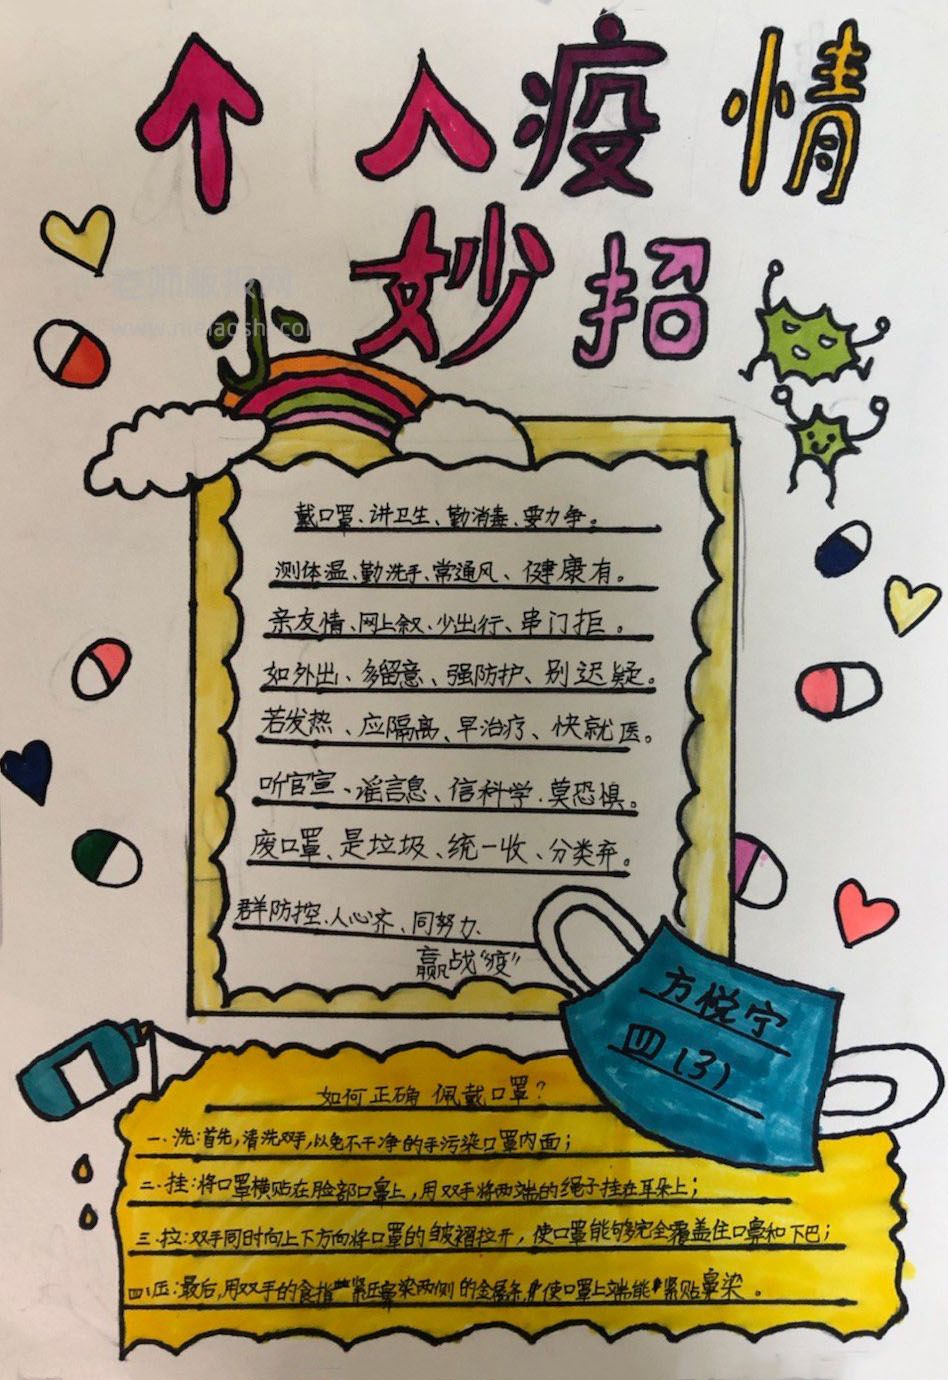 个人疫情
小妙招
www.meilaoshi.com
戴口罩、讲卫生、勤消毒、要力争。
测体温、勤洗手、常通风、健康有。
亲友情、网上叙、少出行、串门拒。
如外出、多留意、强防护、别迟疑。
若发热、应隔离、早治疗、快就医。
听官宣、谣言息、信科学.莫恐惧。
废口罩、是垃圾、统一收、分类弃。
群防控、人心齐、同努力、
赢战“疫”
方悦宁
四(3)
如何正确佩戴口罩?
一.洗:首先,清洗双手,以免不干净的手污染口罩内面;
二.挂:将口罩横贴在脸部口鼻上,用双手将两端的绳子挂在耳朵上;
三.拉:双手同时向上下方向将口罩的皱褶拉开,使口罩能够完全覆盖住口鼻和下巴;
四:压:最后,用双手的食指紧压鼻梁两侧的金属条,使口罩上端能紧贴鼻梁。